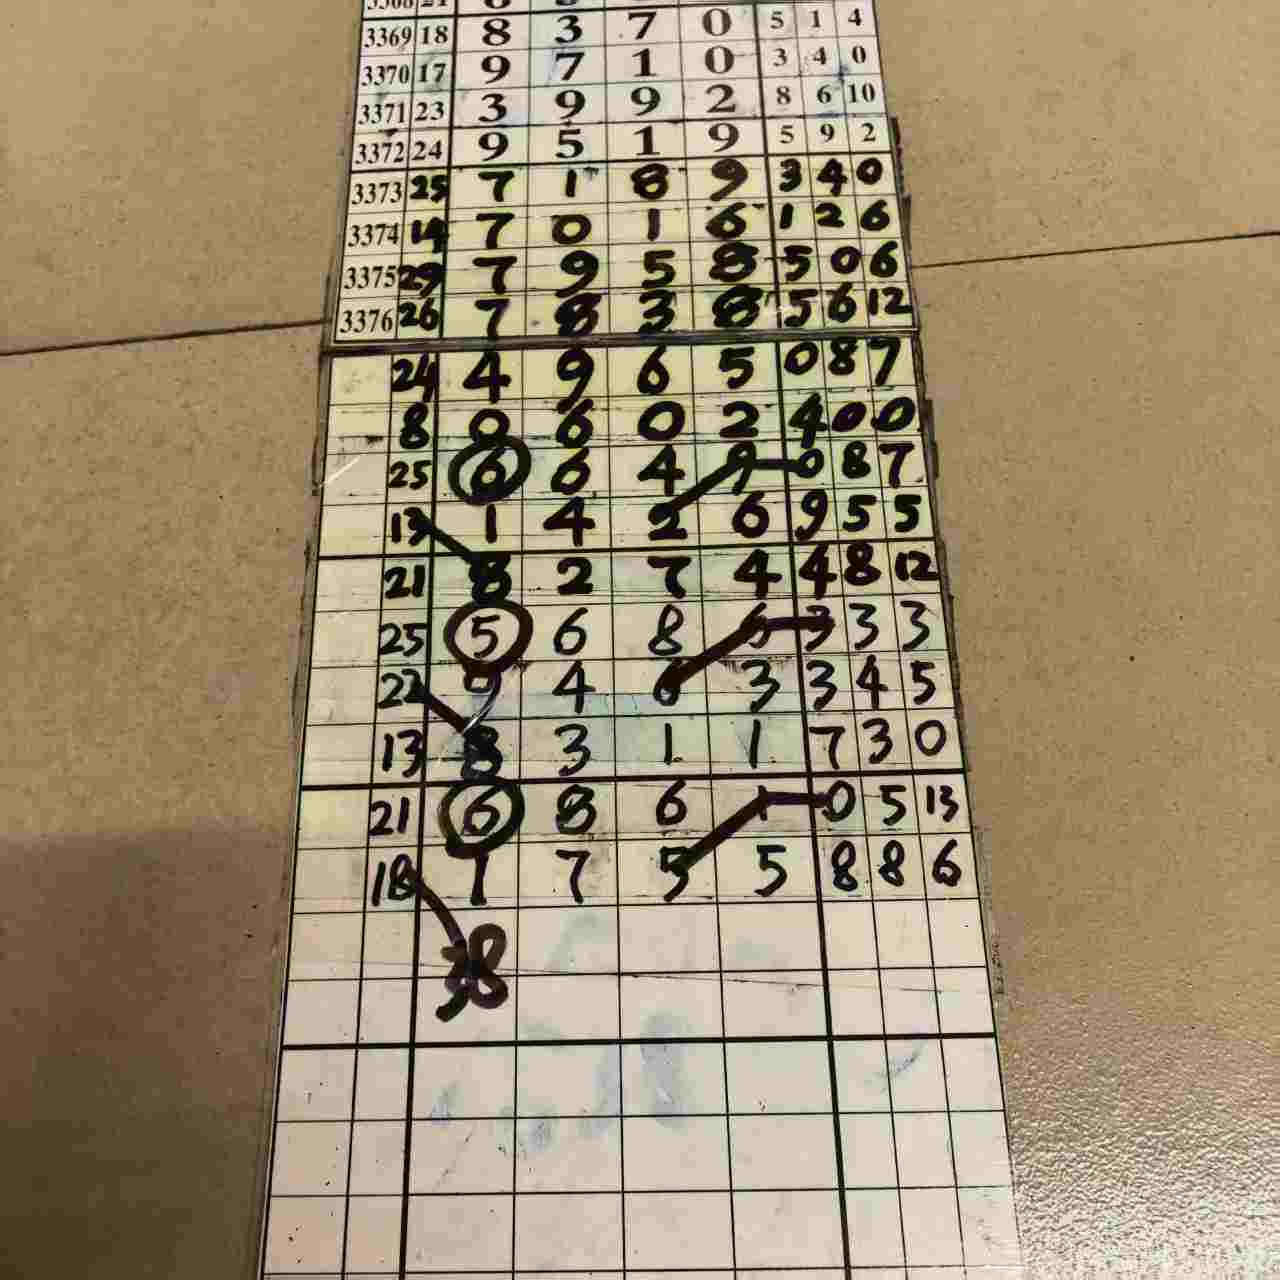 3369 18 8 3 7 0 5 1 4
3370 17 9 7 1 0 3 4 0
3371 23 3 9 9 2 8 6 10
3372 24 9 5 1 9 5 9 2
3373 25 7 1 8 9 3 4 0
3374 14 7 0 1 6 1 2 6
3375 29 7 9 5 8 5 0 6
3376 26 7 8 3 8 5 6 12
24 4 9 6 5 0 8 7
8 0 6 0 2 4 0 0
25 6 6 4 9 0 8 7
13 1 4 2 6 9 5 5
21 8 2 7 4 4 8 12
25 5 6 8 6 3 3 3
22 9 4 6 3 3 4 5
13 8 3 1 1 7 3 0
21 6 8 6 1 0 5 13
18 1 7 5 5 8 8 6
38